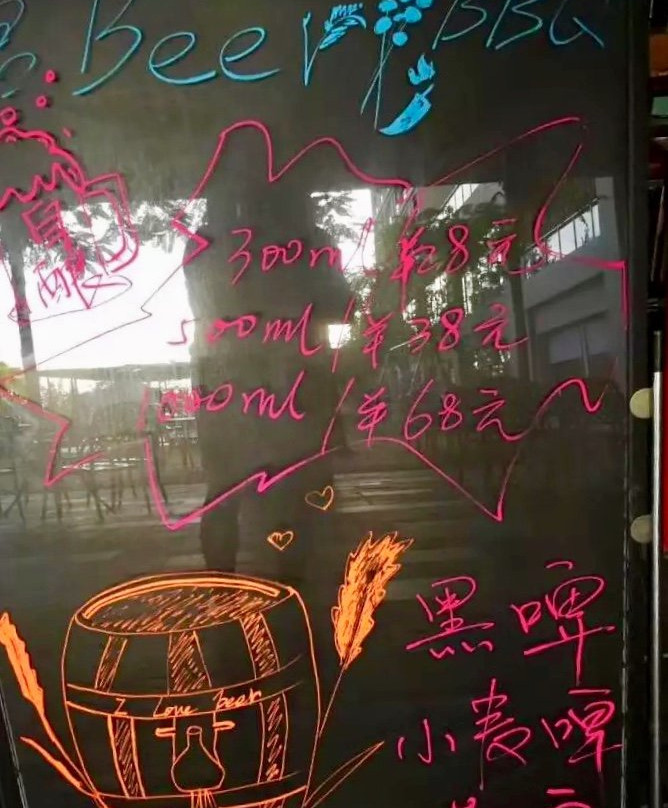 Beer BBQ
自酿
300ml/羊28元
500ml/羊38元
1000ml/羊68元
I Love beer
黑啤
小麦啤